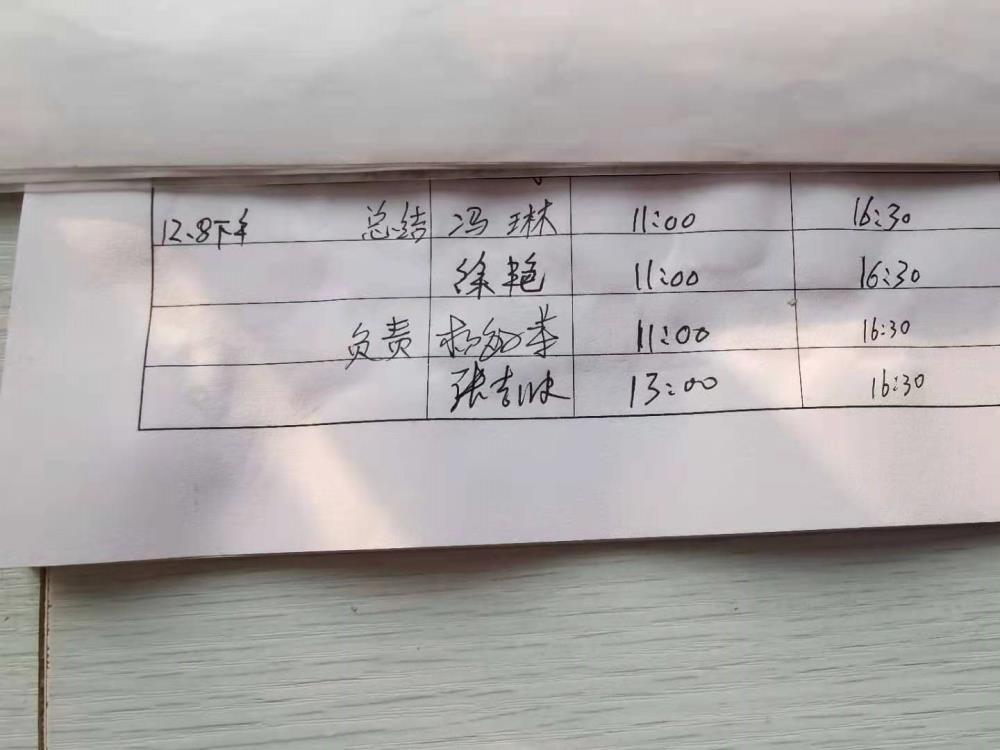 12.8下午 总结 冯琳 11:00 16:30
徐艳 11:00 16:30
负责 11:00 16:30
张吉 13:00 16:30